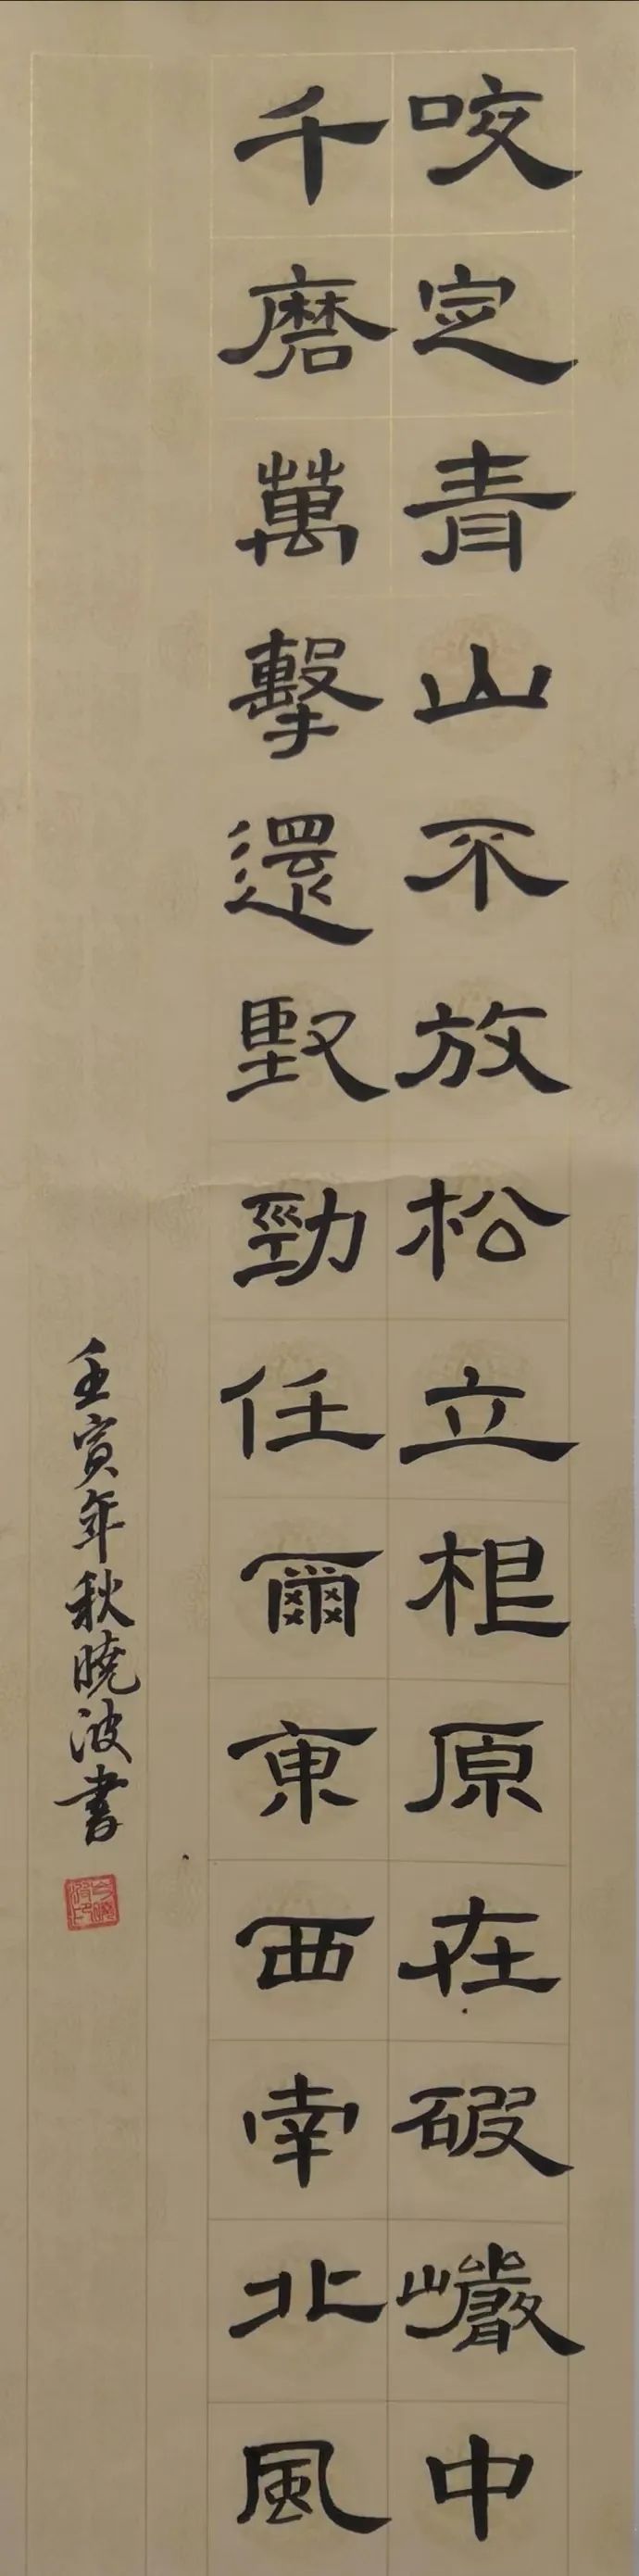 咬定青山不放松立根原在破巖中
千磨萬擊還堅勁任爾東西南北風
壬寅年秋曉波書